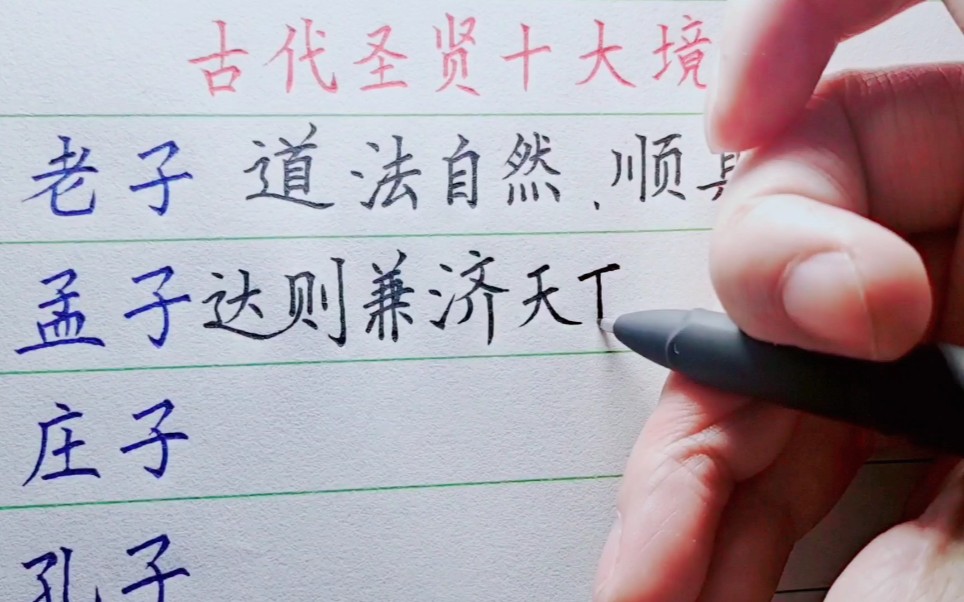 古代圣贤十大境
老子 道法自然、顺
孟子 达则兼济天
庄子
孔子